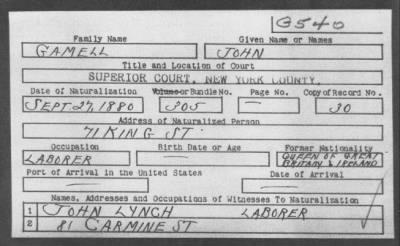 G540
Family Name Given Name or Names
GAMELL JOHN
Title and Location of Court
SUPERIOR COURT, NEW YORK COUNTY.
Date of Naturalization Volume or Bundle No. Page No. Copy of Record No.
SEPT 27, 1880 205 — 30
Address of Naturalized Person
71 KING ST.
Occupation Birth Date or Age Former Nationality
LABORER — QUEEN OF GREAT BRITANY & IRELAND
Port of Arrival in the United States Date of Arrival
— —
Names, Addresses and Occupations of Witnesses To Naturalization
1 JOHN LYNCH LABORER
2 81 CARMINE ST